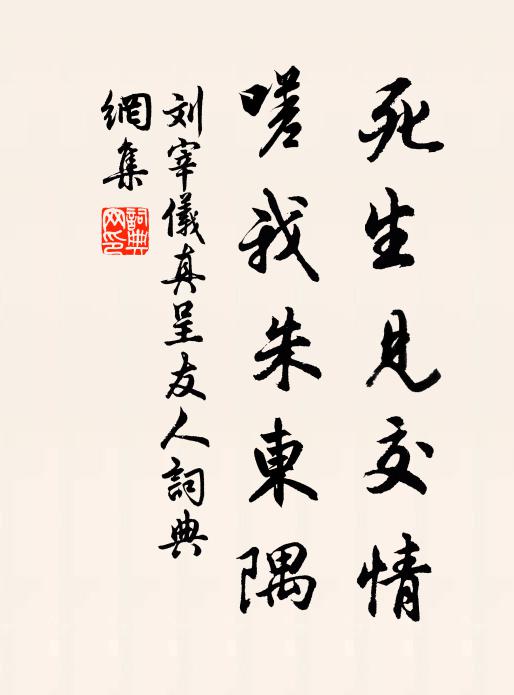 死生見交情
嗟我朱東隅
刘宰儀真呈友人詞典
網集
詞典網印